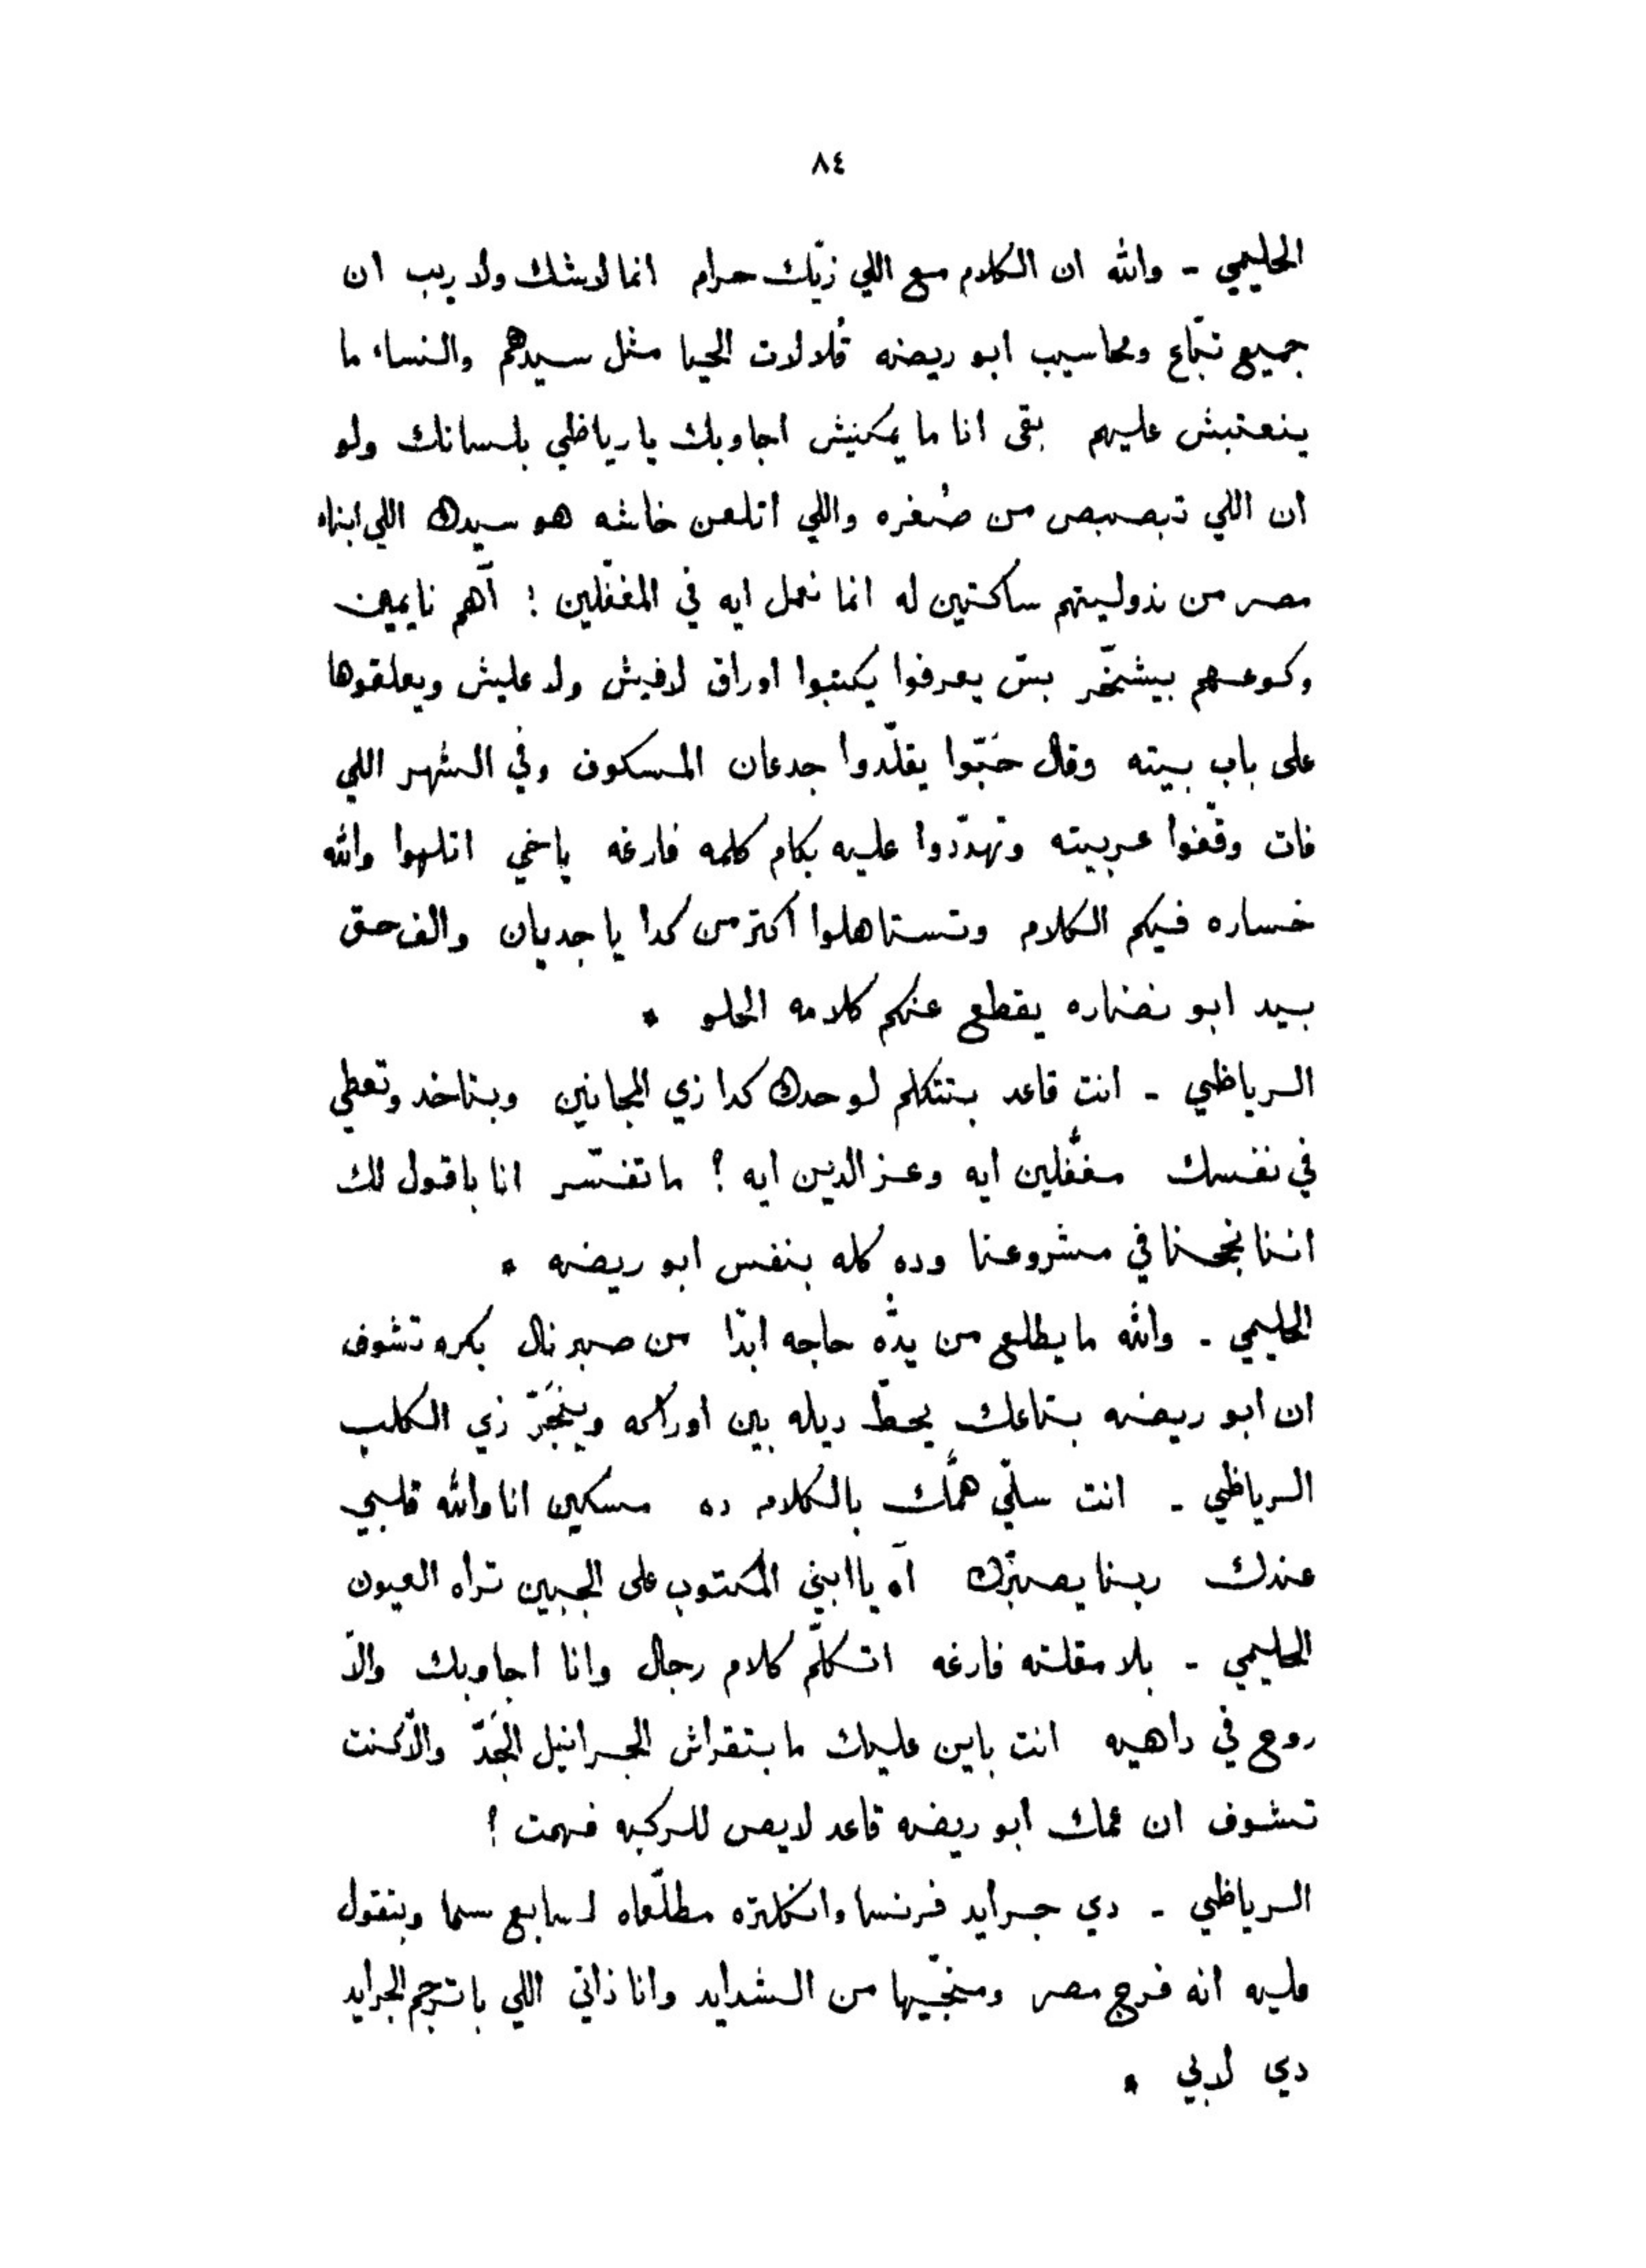 ٨٤
الحليمي - والله ان الكلام مع اللي زيّك حرام انما لاشك ولا ريب ان
جميع تبّاع ومحاسيب ابو ريضه قُلالات الحيا مثل سيدهم والنساء ما
ينعتبش عليهم بقى انا ما يمكنيش اجاوبك يا رياظي بلسانك ولو
ان اللي تبصبص من صُغره واللي اتلعن خاشه هو سيدك اللي ابناء
مصر من نذوليتهم ساكتين له انما نعمل ايه في المغفّلين ؛ آهم نايمين
وكوعهم بيشخّر بسّ يعرفوا يكتبوا اوراق لافيش ولا عليش ويعلقوها
على باب بيته وقال حَبّوا يقلّدوا جدعان المسكوف وفي الشهر اللي
فات وقّفوا عربيته وتهدّدوا عليه بكام كلمه فارغه ياخي اتلهوا والله
خساره فيكم الكلام وتستاهلوا اكتر من كدا يا جديان والف حق
بيد ابو نضاره يقطع عنكم كلامه الحلو *
الرياظي - انت قاعد بتتكلم لوحدك كدا زي المجانين وبتاخد وتعطي
في نفسك مغفّلين ايه وعز الدين ايه ؟ ما تفسّر انا باقول لك
اننا نجحنا في مشروعنا وده كله بنفس ابو ريضه *
الحليمي - والله ما يطلع من يدّه حاجه ابدًا من صبر نال بكره تشوف
ان ابو ريضه بتاعك يحطّ ديله بين اوراكه وينجَرّ زي الكلب
الرياظي - انت سلّي همّك بالكلام ده مسكين انا والله قلبي
عندك ربنا يصبّرك آه يا ابني المكتوب على الجبين تراه العيون
الحليمي - بلا مقلته فارغه اتكلّم كلام رجال وانا اجاوبك والاّ
روح في داهيه انت باين عليك ما بتقراش الجرانيل الجَدّ والاّ كنت
تشوف ان عمك ابو ريضه قاعد لايص للركبه فهمت !
الرياظي - دي جرايد فرنسا وانكلتره مطلّعاه لسابع سما وبتقول
عليه انه فرج مصر ومنجّيها من الشدايد وانا ذاتي اللي باترجم الجرايد
دي لابي *